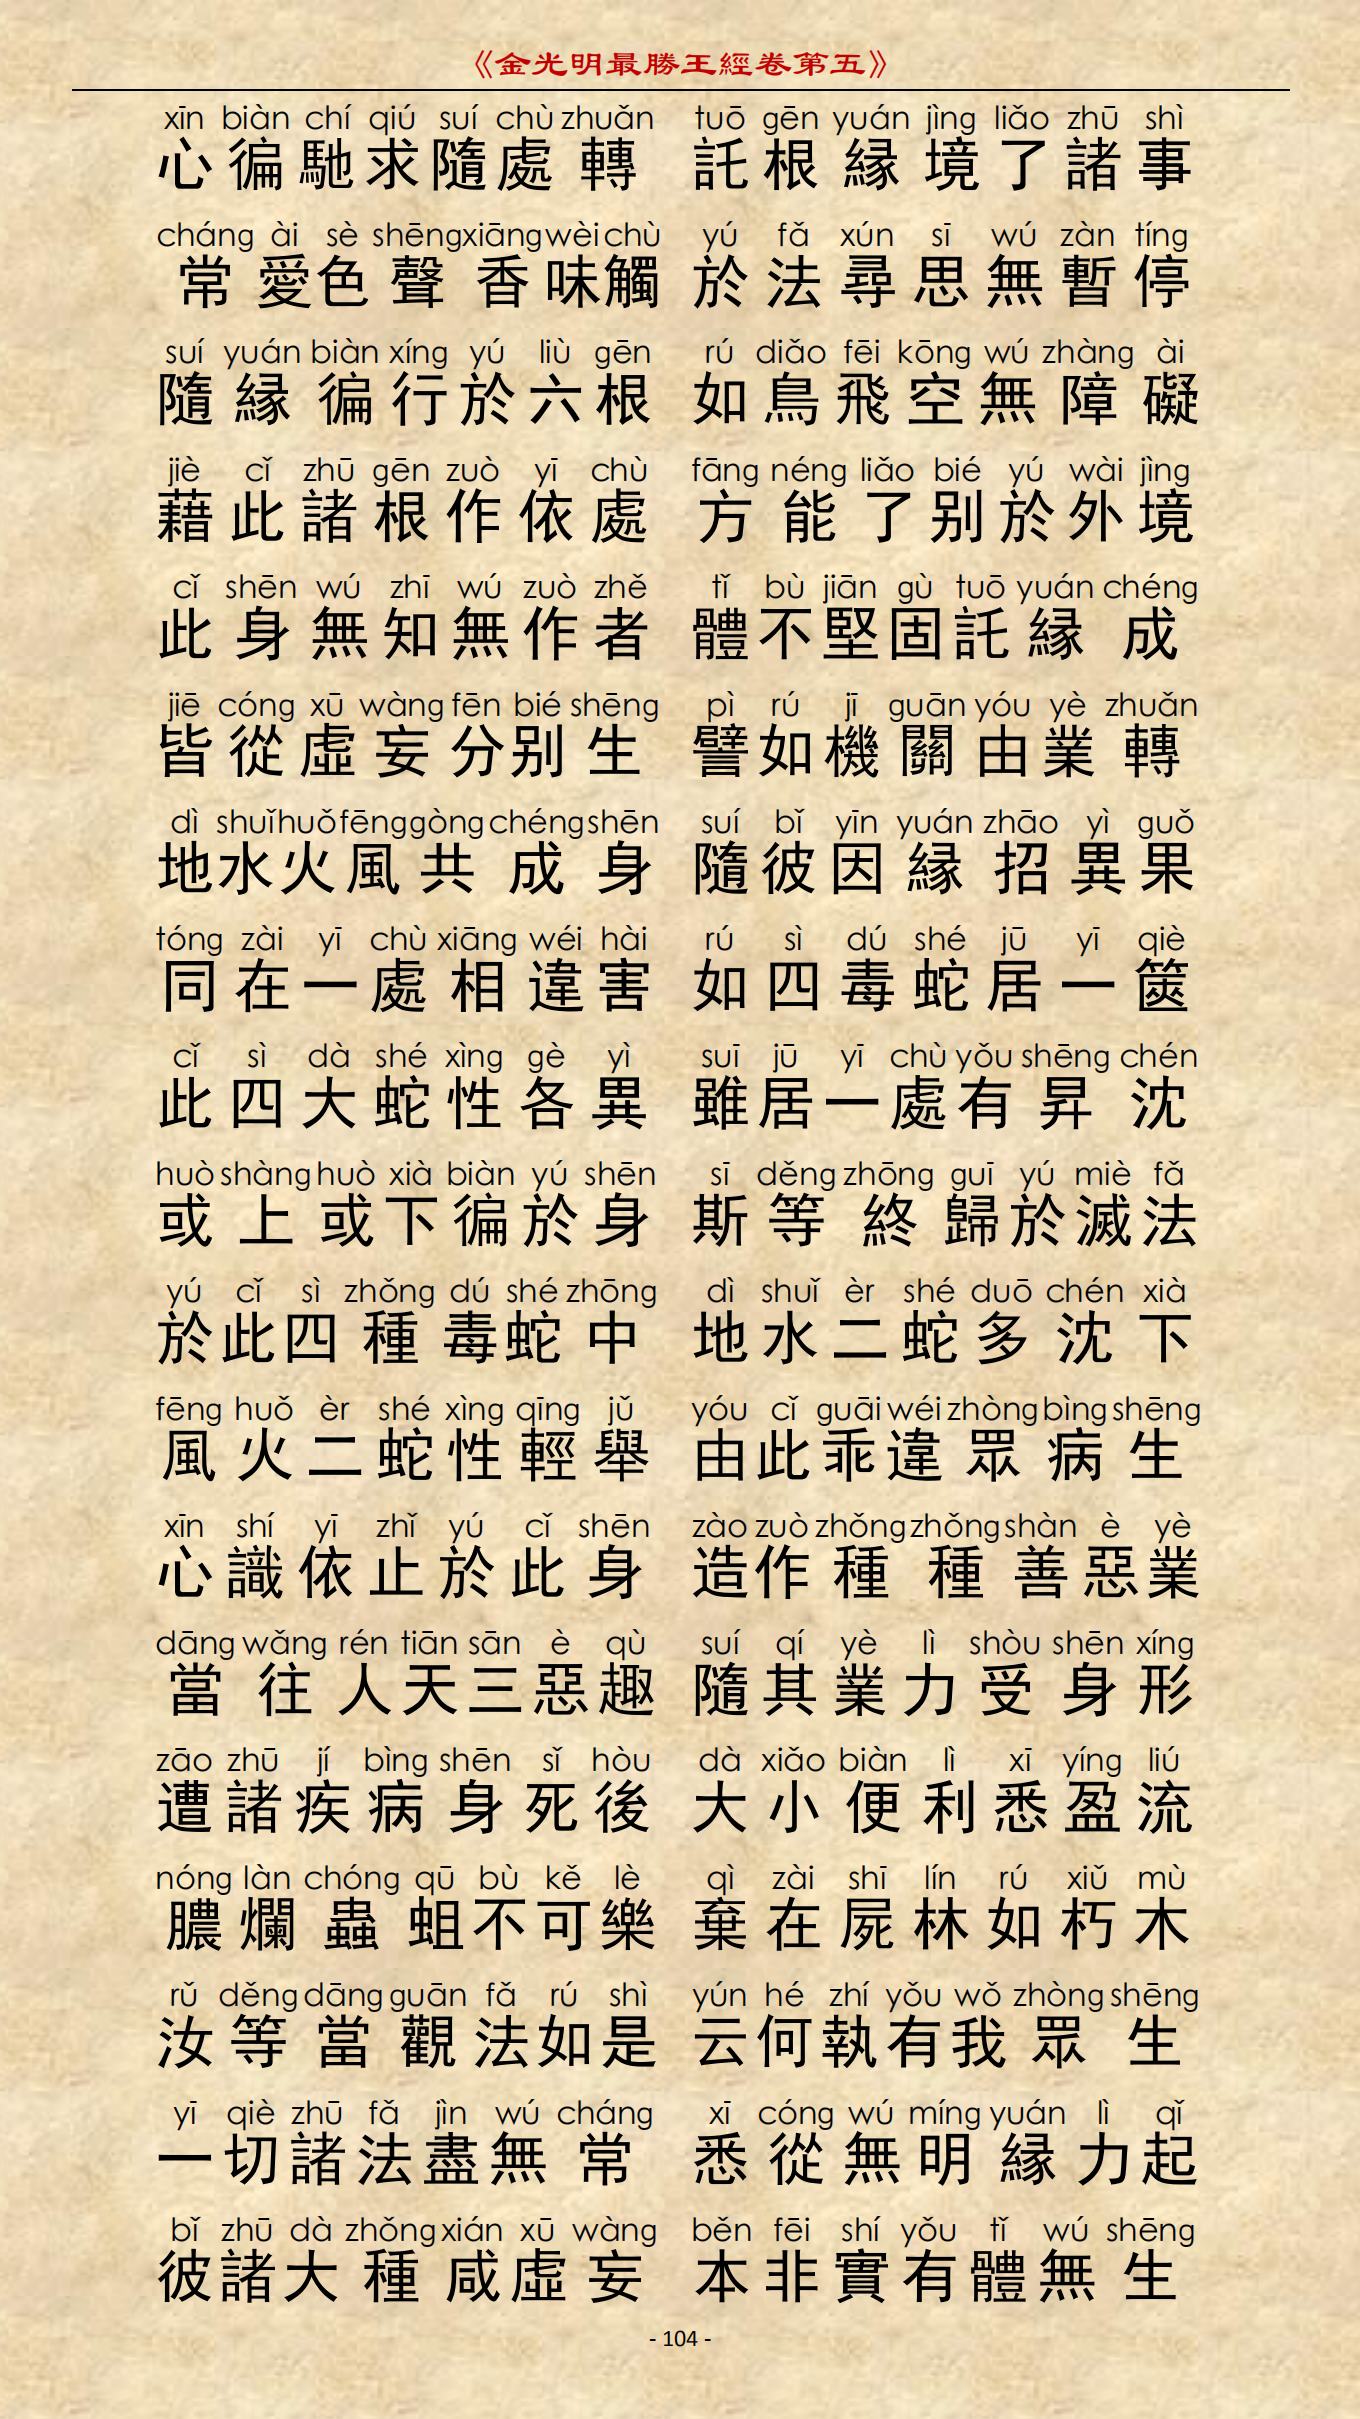 《金光明最勝王經卷第五》
xīn biàn chí qiú suí chù zhuǎn tuō gēn yuán jìng liǎo zhū shì
心徧馳求隨處轉 託根緣境了諸事
cháng ài sè shēng xiāng wèi chù yú fǎ xún sī wú zàn tíng
常愛色聲香味觸 於法尋思無暫停
suí yuán biàn xíng yú liù gēn rú diǎo fēi kōng wú zhàng ài
隨緣徧行於六根 如鳥飛空無障礙
jiè cǐ zhū gēn zuò yī chù fāng néng liǎo bié yú wài jìng
藉此諸根作依處 方能了别於外境
cǐ shēn wú zhī wú zuò zhě tǐ bù jiān gù tuō yuán chéng
此身無知無作者 體不堅固託緣成
jiē cóng xū wàng fēn bié shēng pì rú jī guān yóu yè zhuǎn
皆從虛妄分别生 譬如機關由業轉
dì shuǐ huǒ fēng gòng chéng shēn suí bǐ yīn yuán zhāo yì guǒ
地水火風共成身 隨彼因緣招異果
tóng zài yī chù xiāng wéi hài rú sì dú shé jū yī qiè
同在一處相違害 如四毒蛇居一篋
cǐ sì dà shé xìng gè yì suī jū yī chù yǒu shēng chén
此四大蛇性各異 雖居一處有昇沈
huò shàng huò xià biàn yú shēn sī děng zhōng guī yú miè fǎ
或上或下徧於身 斯等終歸於滅法
yú cǐ sì zhǒng dú shé zhōng dì shuǐ èr shé duō chén xià
於此四種毒蛇中 地水二蛇多沈下
fēng huǒ èr shé xìng qīng jǔ yóu cǐ guāi wéi zhòng bìng shēng
風火二蛇性輕舉 由此乖違眾病生
xīn shí yī zhǐ yú cǐ shēn zào zuò zhǒng zhǒng shàn è yè
心識依止於此身 造作種種善惡業
dāng wǎng rén tiān sān è qù suí qí yè lì shòu shēn xíng
當往人天三惡趣 隨其業力受身形
zāo zhū jí bìng shēn sǐ hòu dà xiǎo biàn lì xī yíng liú
遭諸疾病身死後 大小便利悉盈流
nóng làn chóng qū bù kě lè qì zài shī lín rú xiǔ mù
膿爛蟲蛆不可樂 棄在屍林如朽木
rǔ děng dāng guān fǎ rú shì yún hé zhí yǒu wǒ zhòng shēng
汝等當觀法如是 云何執有我眾生
yī qiè zhū fǎ jìn wú cháng xī cóng wú míng yuán lì qǐ
一切諸法盡無常 悉從無明緣力起
bǐ zhū dà zhǒng xián xū wàng běn fēi shí yǒu tǐ wú shēng
彼諸大種咸虛妄 本非實有體無生
- 104 -